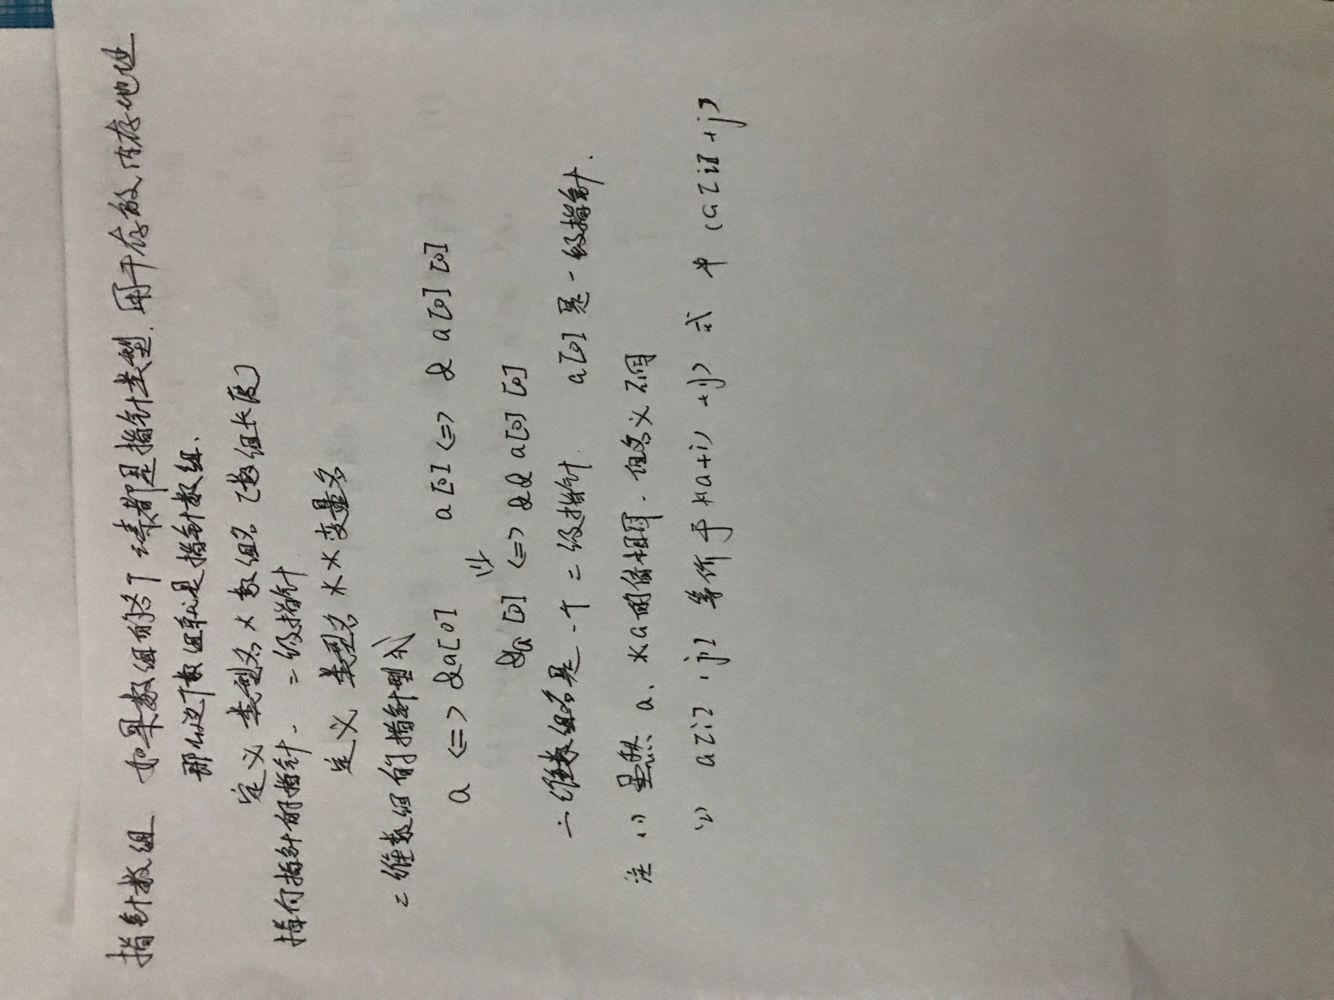 指针数组 如果数组的各个元素都是指针类型.用于存放内存地址
那么这个数组就是指针数组.
定义 类型名 * 数组名 [数组长度]
指向指针的指针. 二级指针
定义 类型名 * * 变量名
二维数组的指针型式
a <=> &a[0] a[0] <=> & a[0][0]
&a[0] <=> && a[0][0]
二维数组名是一个二级指针. a[0]是一级指针.
注 (1) 虽然 a、*a的值相同.但含义不同
(2) a[i][j] 等价于 *(*(a+i)+j) 或 *(a[i]+j)